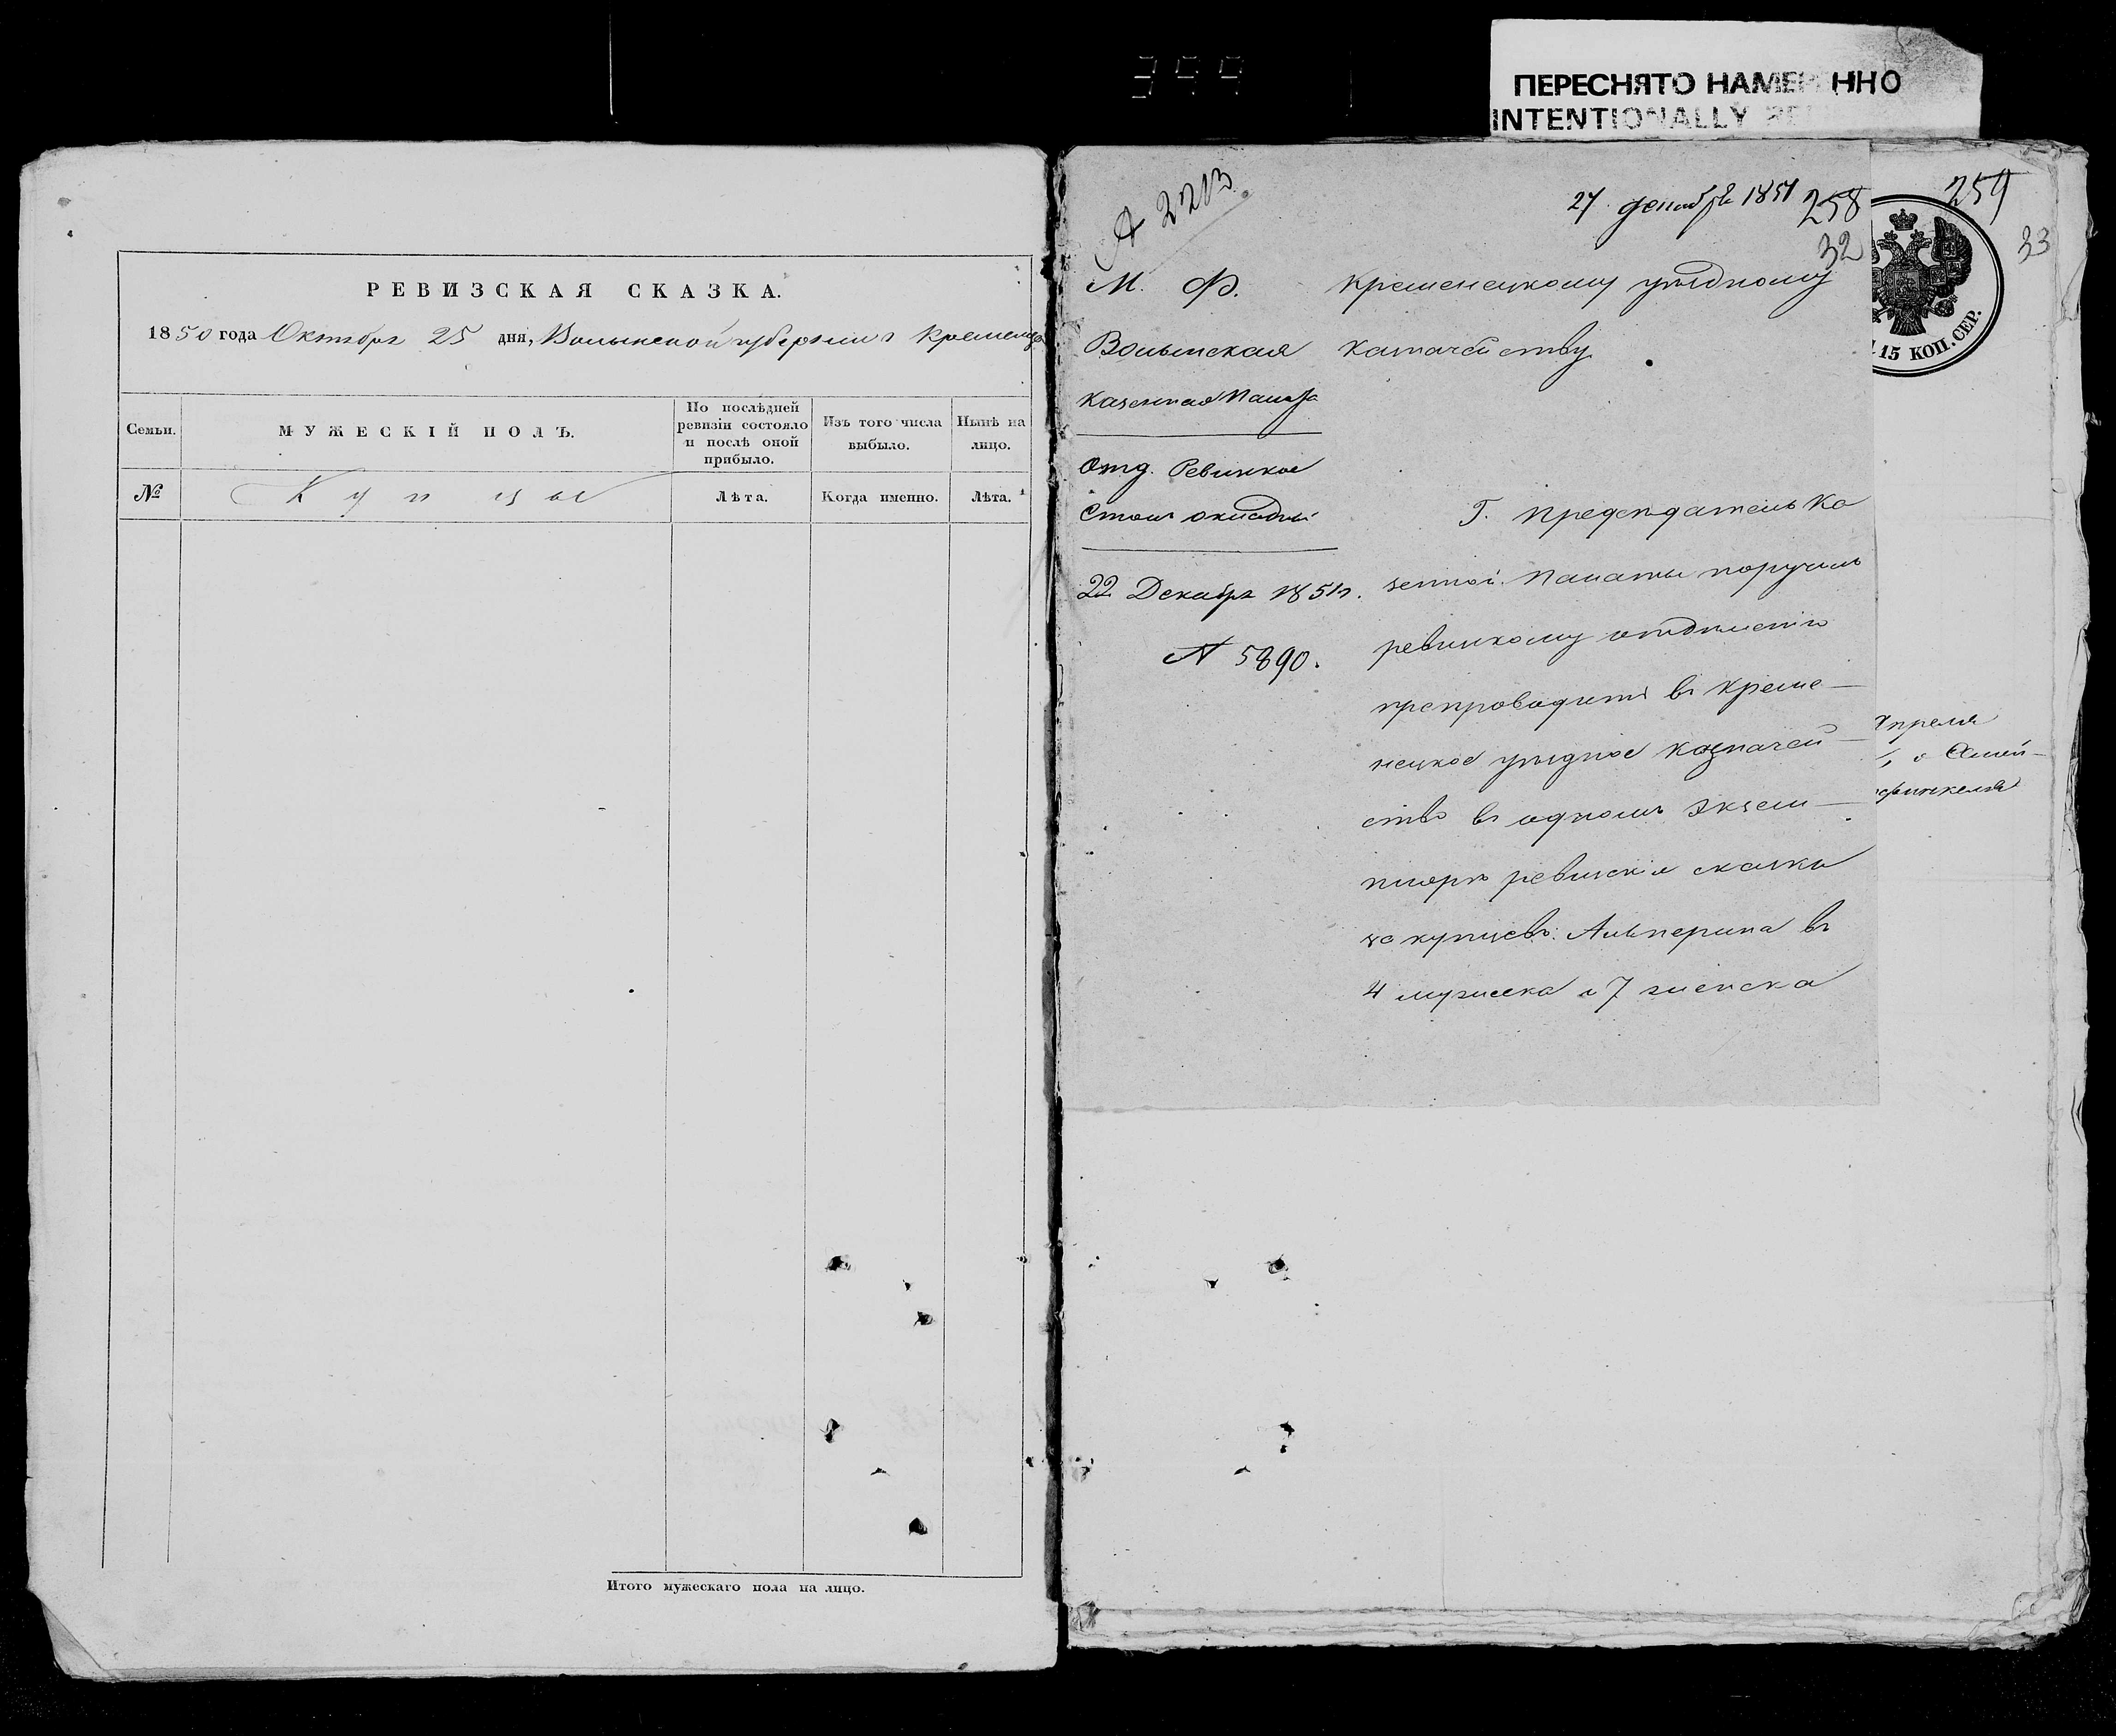 399
ПЕРЕСНЯТО НАМЕР ННО
INTENTIONALLY RE
РЕВИЗСКАЯ СКАЗКА.
1850 года Октября 25 дня, Волынской губернии г Кременца
Семьи.
МУЖЕСКІЙ ПОЛЪ.
По послѣдней
ревизіи состояло
и послѣ оной
прибыло.
Изъ того числа
выбыло.
Нынѣ на
лицо.
№
Купцы
Лѣта.
Когда именно.
Лѣта.
Итого мужескаго пола на лицо.
№ 2213
27 декабря 1851
258
32
М. Ф.
Волынская
Казенная Палата
Отд. Ревизкое
Столъ окладный
22 Декабря 1851 г.
№ 5890.
Кременецкому уѣздному
Казначейству
Г. Предсѣдатель Ка
зенной Палаты поручилъ
ревизкому отдѣленію
препроводить въ Креме-
нецкое уѣздное Казначей-
ство въ одномъ экзем-
плярѣ ревизскія сказки
о купцевъ: Альперина въ
4 мужеска и 7 женска
259
33
15 КОП. СЕР.
Апреля
финкеля